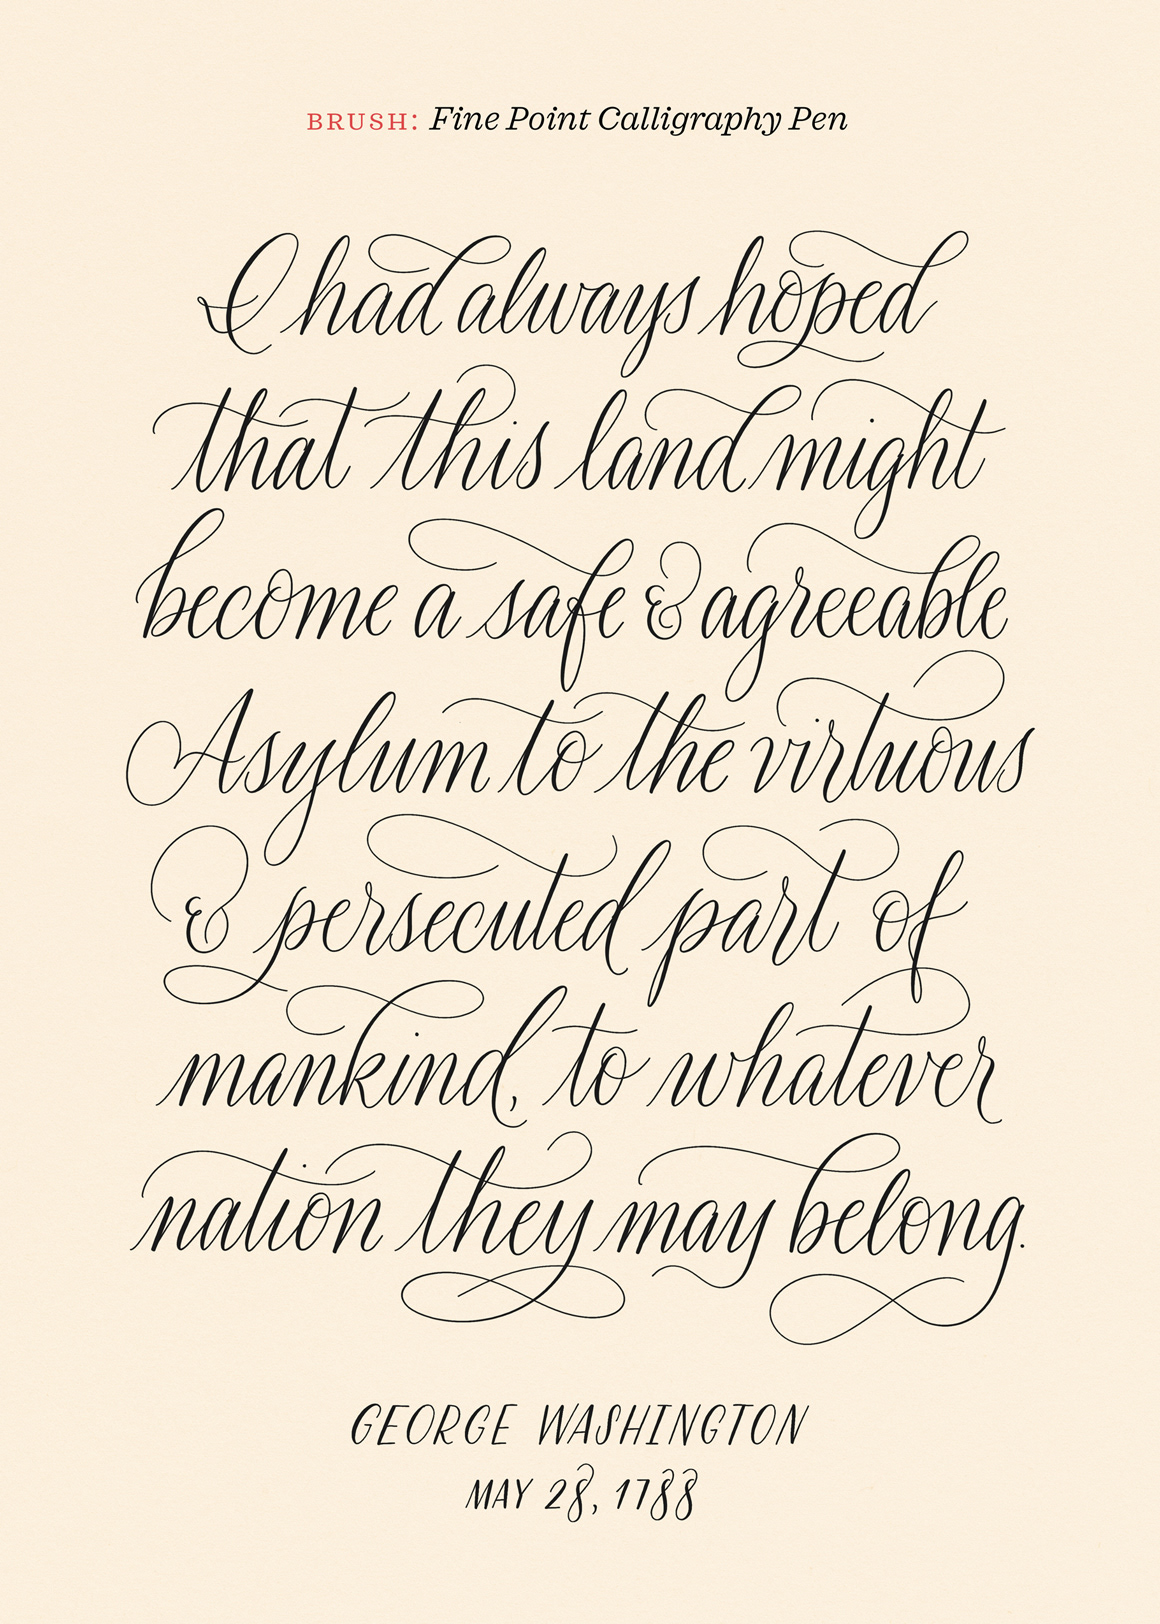 BRUSH: Fine Point Calligraphy Pen
I had always hoped
that this land might
become a safe & agreeable
Asylum to the virtuous
& persecuted part of
mankind, to whatever
nation they may belong.
GEORGE WASHINGTON
MAY 28, 1788